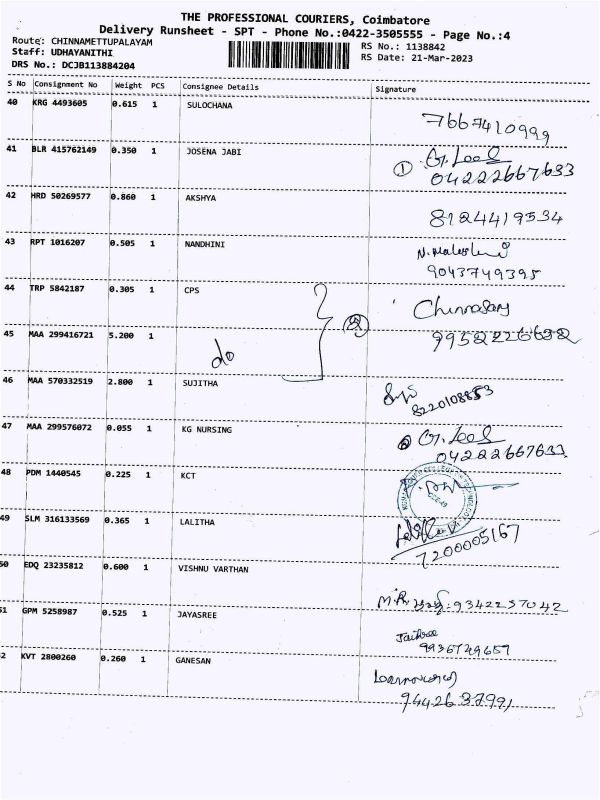 THE PROFESSIONAL COURIERS, Coimbatore
Delivery Runsheet - SPT - Phone No.:0422-3505555 - Page No.:4
Route: CHINNAMETTUPALAYAM
RS No.: 1138842
Staff: UDHAYANITHI
RS Date: 21-Mar-2023
DRS No.: DCJB113884204
S No Consignment No Weight PCS Consignee Details Signature
40 KRG 4493605 0.615 1 SULOCHANA
7667410999
41 BLR 415762149 0.350 1 JOSENA JABI
1
04222667633
42 HRD 50269577 0.860 1 AKSHYA
8124419534
43 RPT 1016207 0.505 1 NANDHINI
9043749395
44 TRP 5842187 0.305 1 CPS
2
45 MAA 299416721 5.200 1
do
46 MAA 570332519 2.800 1 SUJITHA
8220108853
47 MAA 299576072 0.055 1 KG NURSING
04222667633
48 PDM 1440545 0.225 1 KCT
49 SLM 316133569 0.365 1 LALITHA
7200005167
50 EDQ 23235812 0.600 1 VISHNU VARTHAN
9342257042
51 GPM 5258987 0.525 1 JAYASREE
52 KVT 2800260 0.260 1 GANESAN